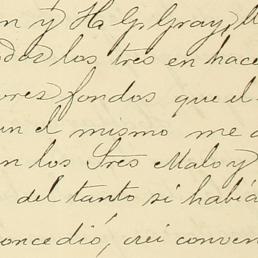 n y Ha G. Gray, ll
odos los tres en hace
ores fondos que el
un el mismo me a
n los Tres Malo y
del tanto si había
concedió, creí conven